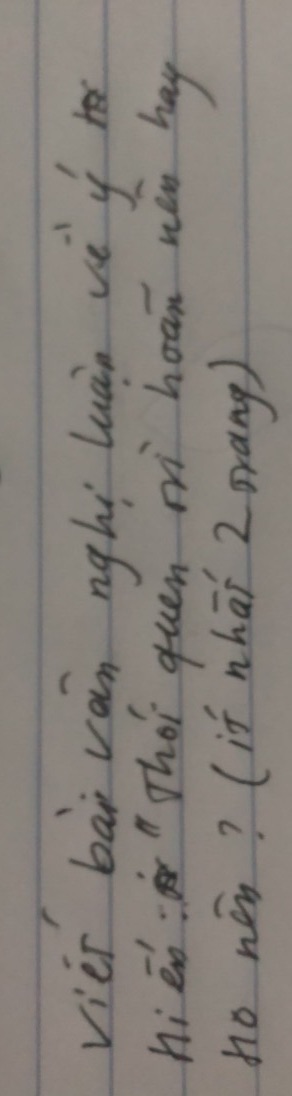 Viết bài văn nghị luận về ý
kiến: "Thói quen trì hoãn nên hay
ko nên? (ít nhất 2 trang)